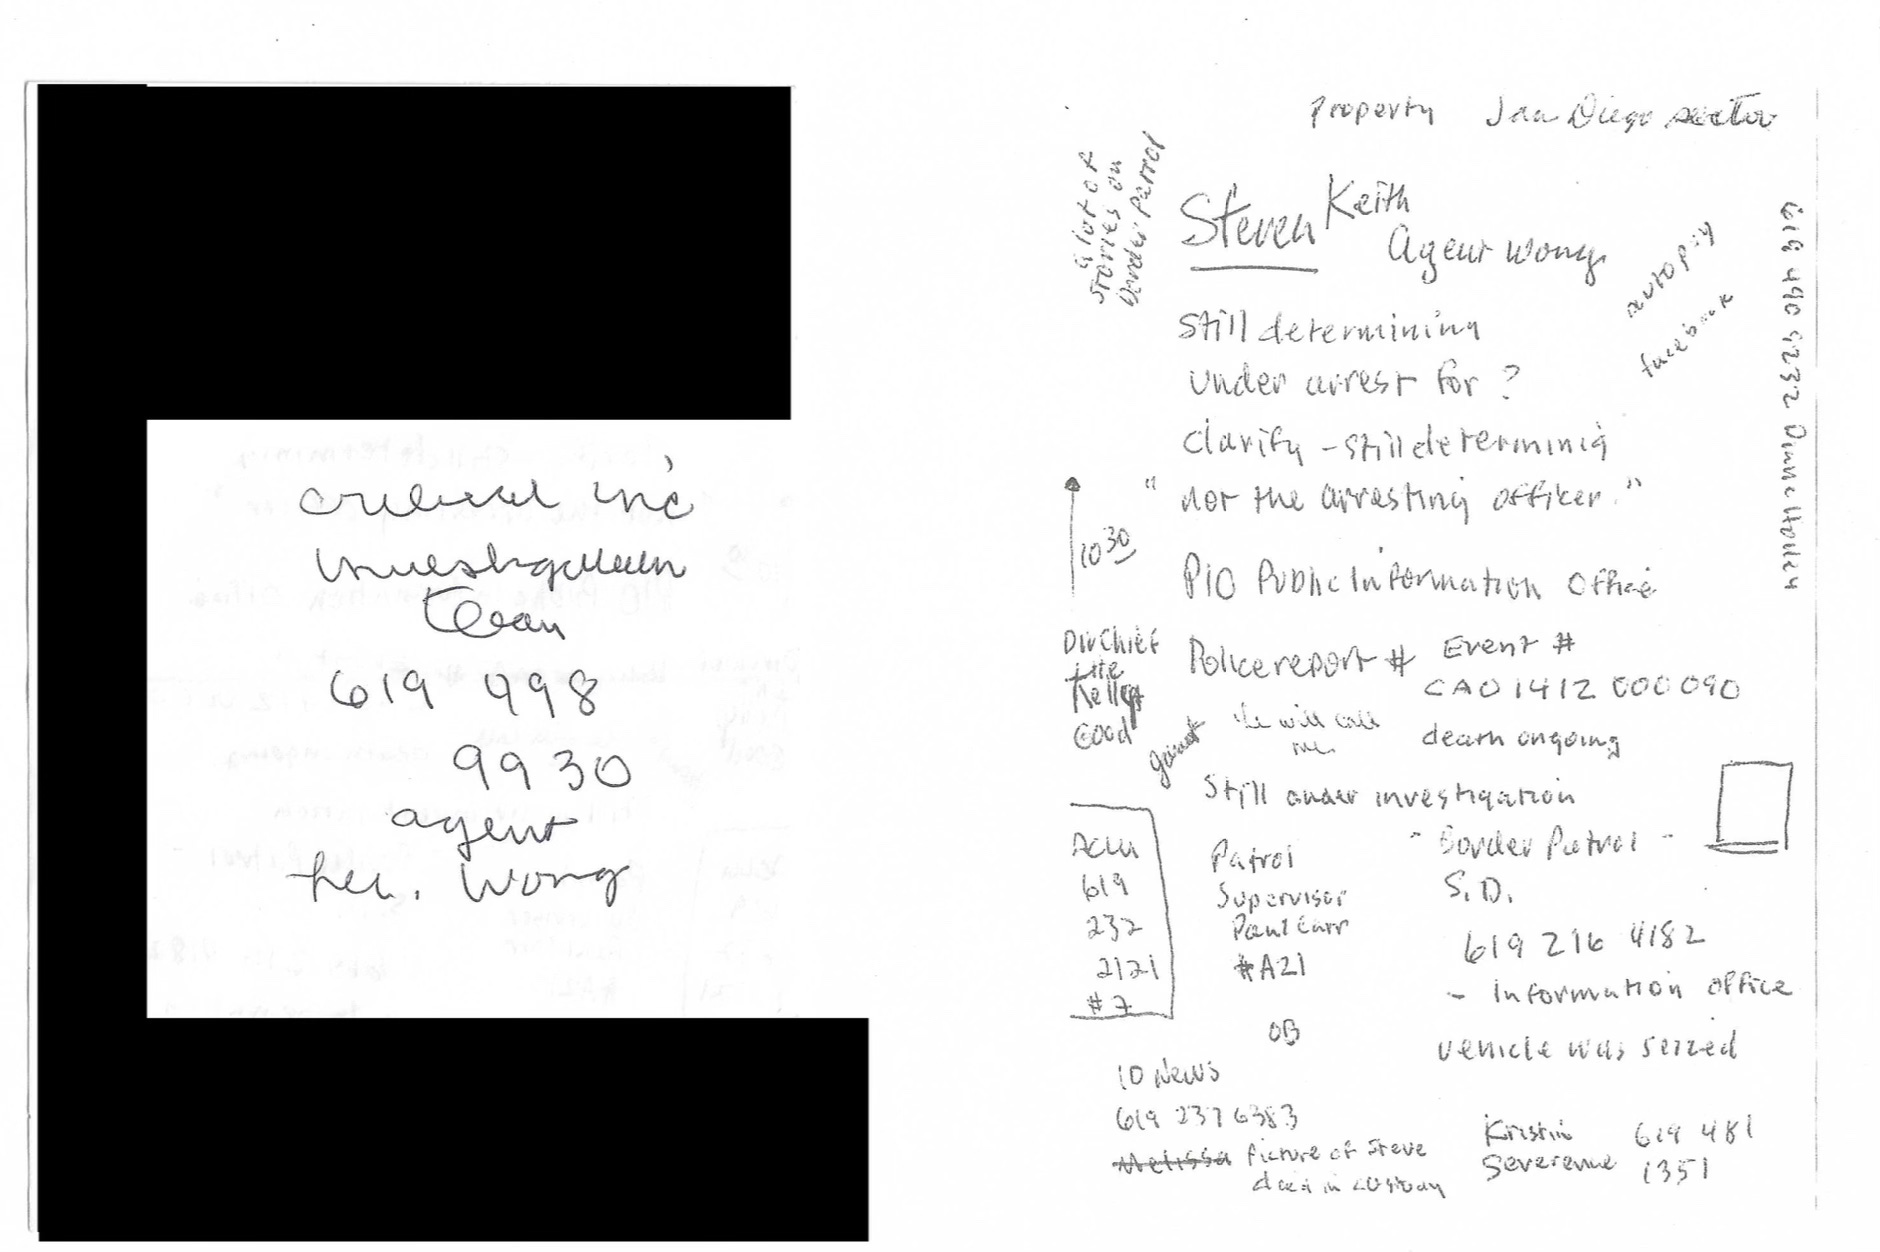 critical inc
investigation
team
619 998
9930
agent
Wong
Property San Diego sector
a lot of
stories on
Border Patrol
Steven Keith
Agent Wong
autopsy
facebook
619 490 9232
still determining
under arrest for ?
clarify - still determinig
" not the arresting officer."
1030
PIO Public Information Office
Div Chief
Kelly
Good
Police report # Event #
CAO 1412 000 090
he will call
me
death ongoing
Still under investigation
ACLU
619
232
2121
#7
Patrol
Supervisor
Paul Carr
#A21
- Border Patrol -
S.D.
619 216 4182
- Information office
vehicle was seized
OB
10 News
619 237 6383
Melissa Picture of Steve
died in custody
Kristin 619 481
Severence 1351